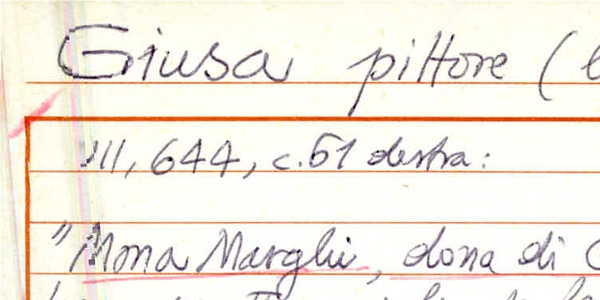 Giusa pittore (
III, 644, c. 51 destra:
"Mona Marghi, dona di